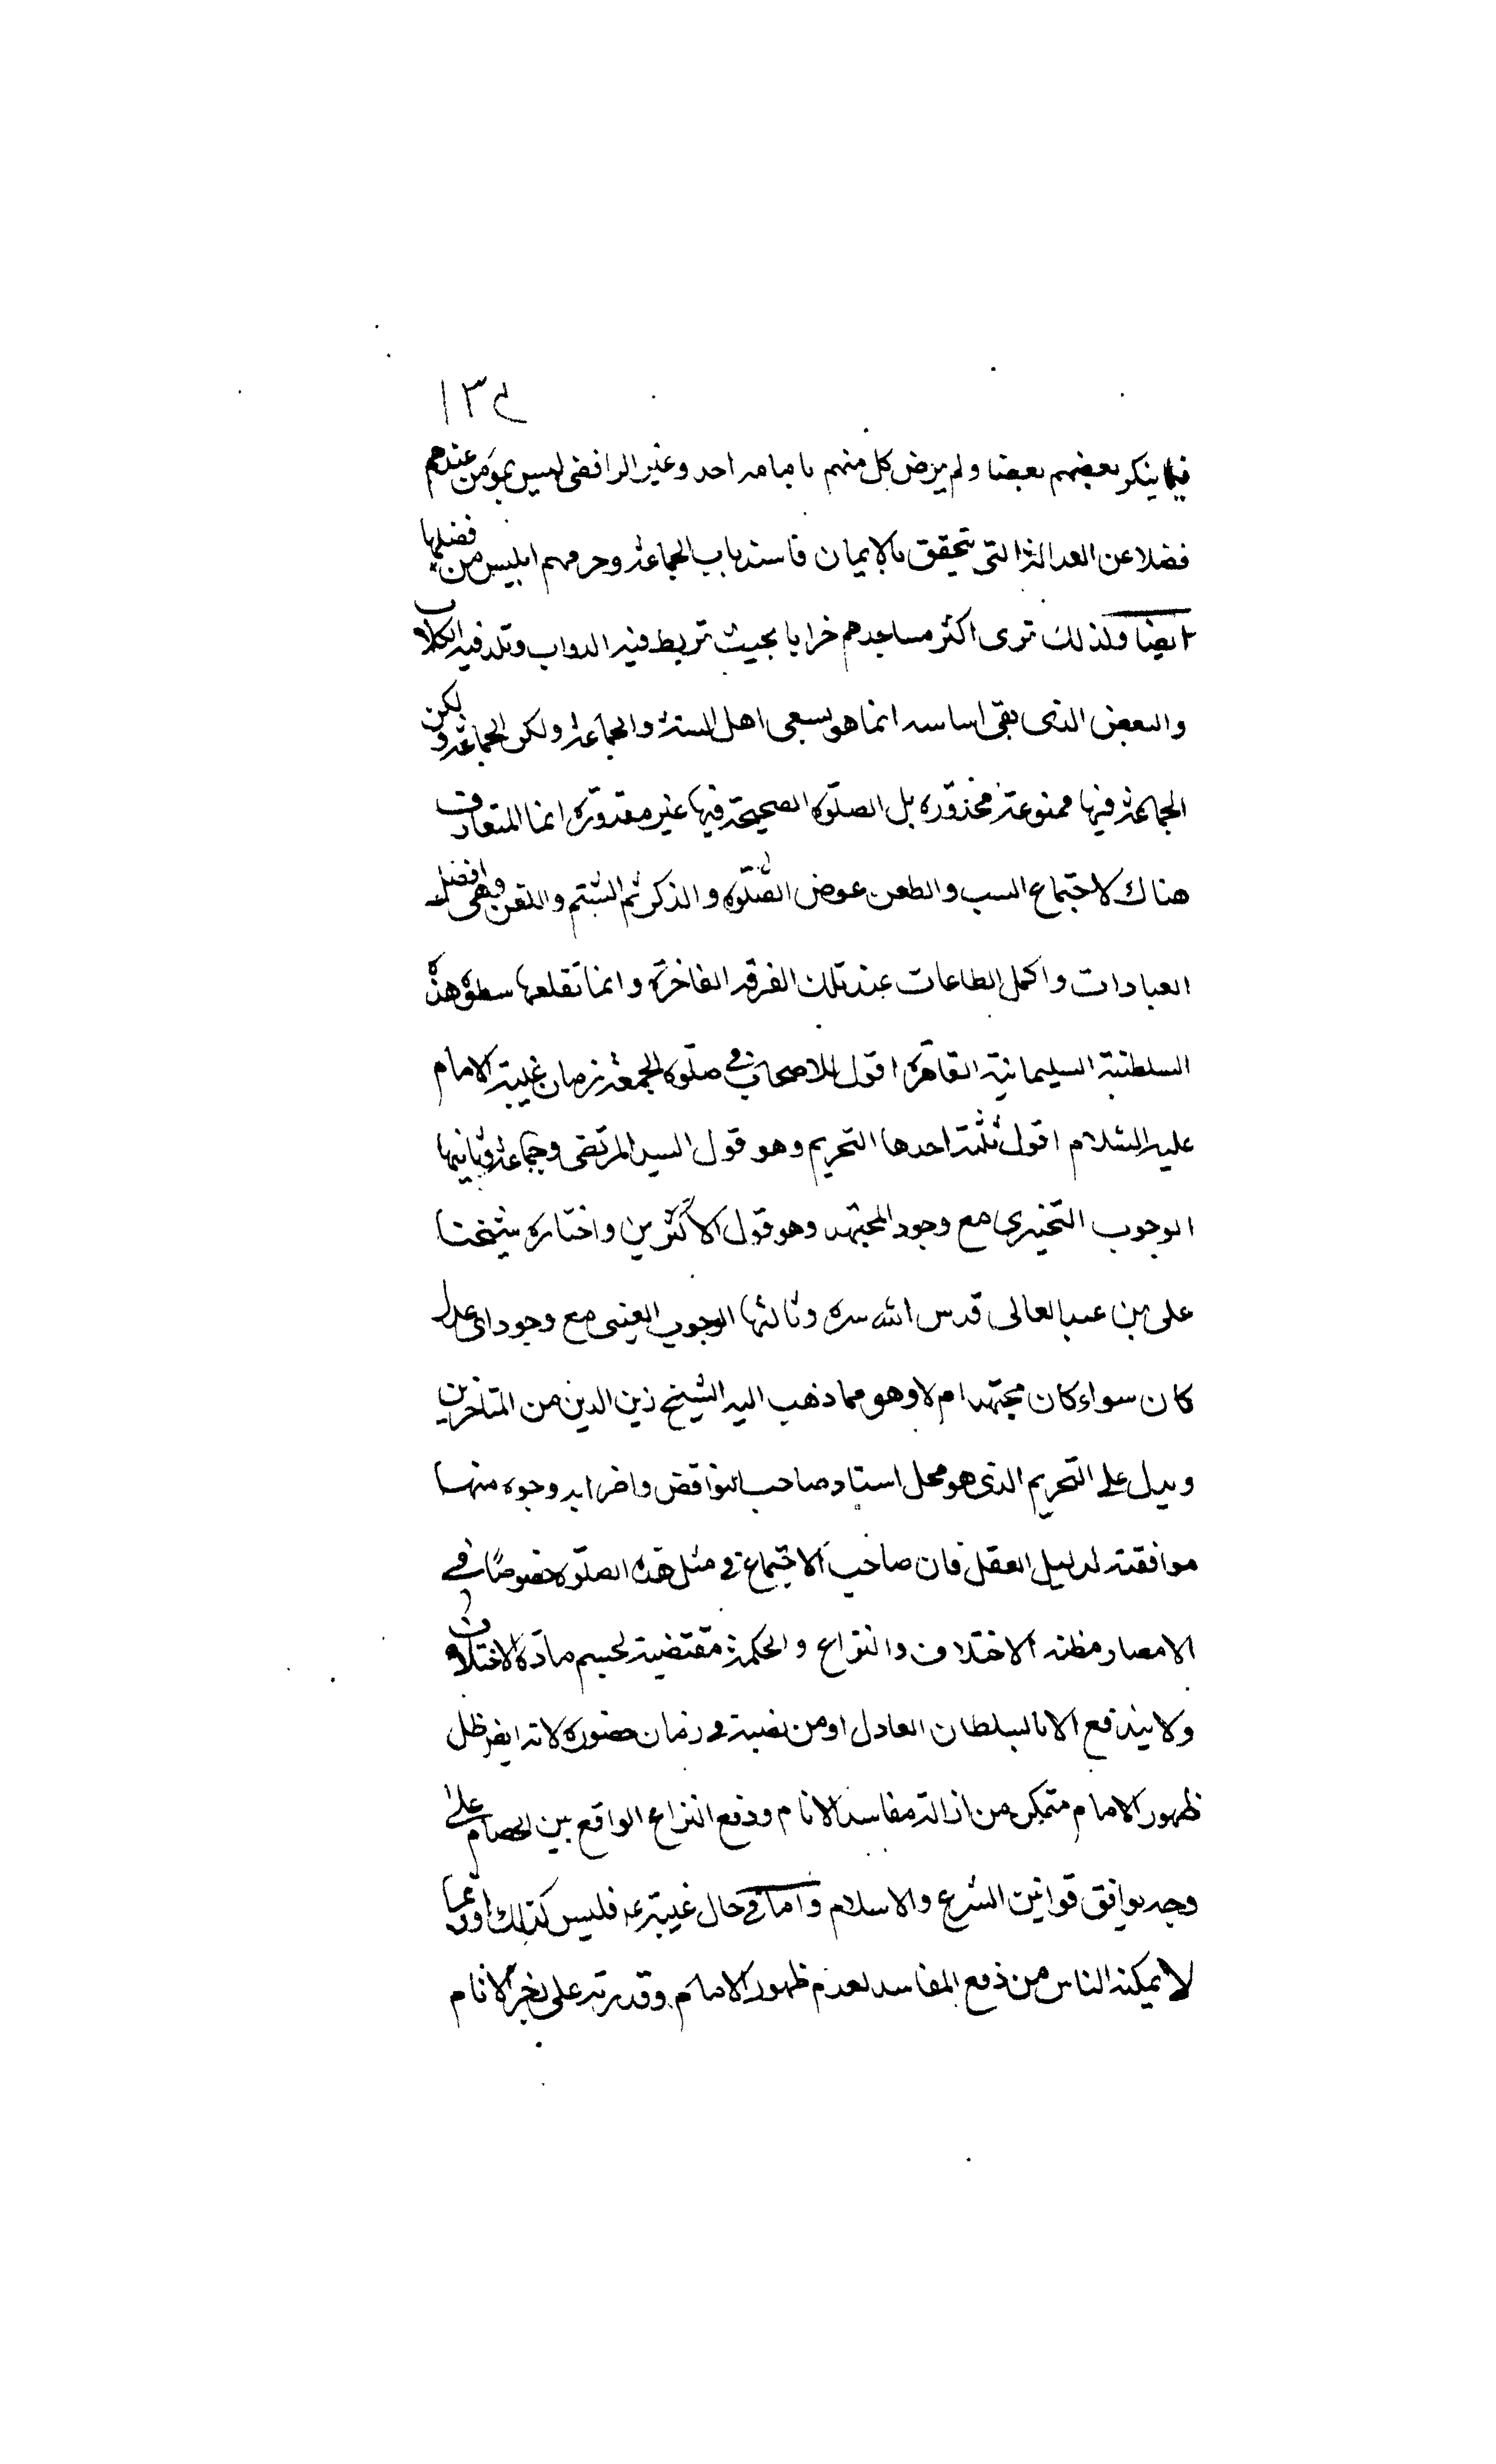 ١٣٤
فيما ينكر بعضهم بعضا ولم يرض كل منهم بامامه احد وغير الرافضى ليس بمؤمن عندهم
فضلا عن العدالة التى تتحقق بالايمان فانسد باب الجماعة وحرمهم ابليس من فضلها
ايضا ولذلك ترى اكثر مساجدهم خرابا بحيث تربط فيه الدواب وتلد فيه الكلاب
والبعض الذى بقى اساسه انما هو بسعى اهل السنة والجماعة ولكن الجماعة ولكن
الجماعة فيها ممنوعة محذورة بل الصلوة الصحيحة فيها غير مقدورة انما المتعارف
هناك لاجتماع السب والطعن عوض الصلوة والذكر ثم الشتم واللعن وهى افضل
العبادات واكمل الطاعات عند تلك الفرقه الفاخرة وانما تقلعها سطوة هذه
السلطنة السليمانية القاهرة اقول للاصحاب فى صلوة الجمعة زمان غيبة الامام
عليه السلام اقول ثلثة احدها التحريم وهو قول السيد المرتضى وجماعة وثانيها
الوجوب التخيرى مع وجود المجتهد وهو قول الاكثرين واختاره شيخنا
على بن عبد العالى قدس الله سره وثالثها الوجوب العينى مع وجود اى عدل
كان سواء كان مجتهدا ام لا وهو مما ذهب اليه الشيخ زين الدين من المتاخرين
ويدل على التحريم الذى هو محل استبعاد صاحب النواقض واضرابه وجوه منها
موافقته لدليل العقل فان صاحب الاجتماع فى مثل هذه الصلوة خصوصا فى
الامصار مظنه الاختلاف والنزاع والحكمة مقتضية لحسم مادة الاختلاف
ولا يندفع الا بالسلطان العادل او من نصبه فى زمان حضوره لانه ايضر ظل
ظهور الامام متمكن من ازالة مفاسد الانام ودفع النزاع الواقع بين الخصام على
وجه يوافق قوانين الشرع والاسلام واما فى حال غيبته ع فليس كذلك اذ ربما
لا يمكنه الناس من دفع المفاسد لعدم ظهور الامام وقدرته على زجر الانام